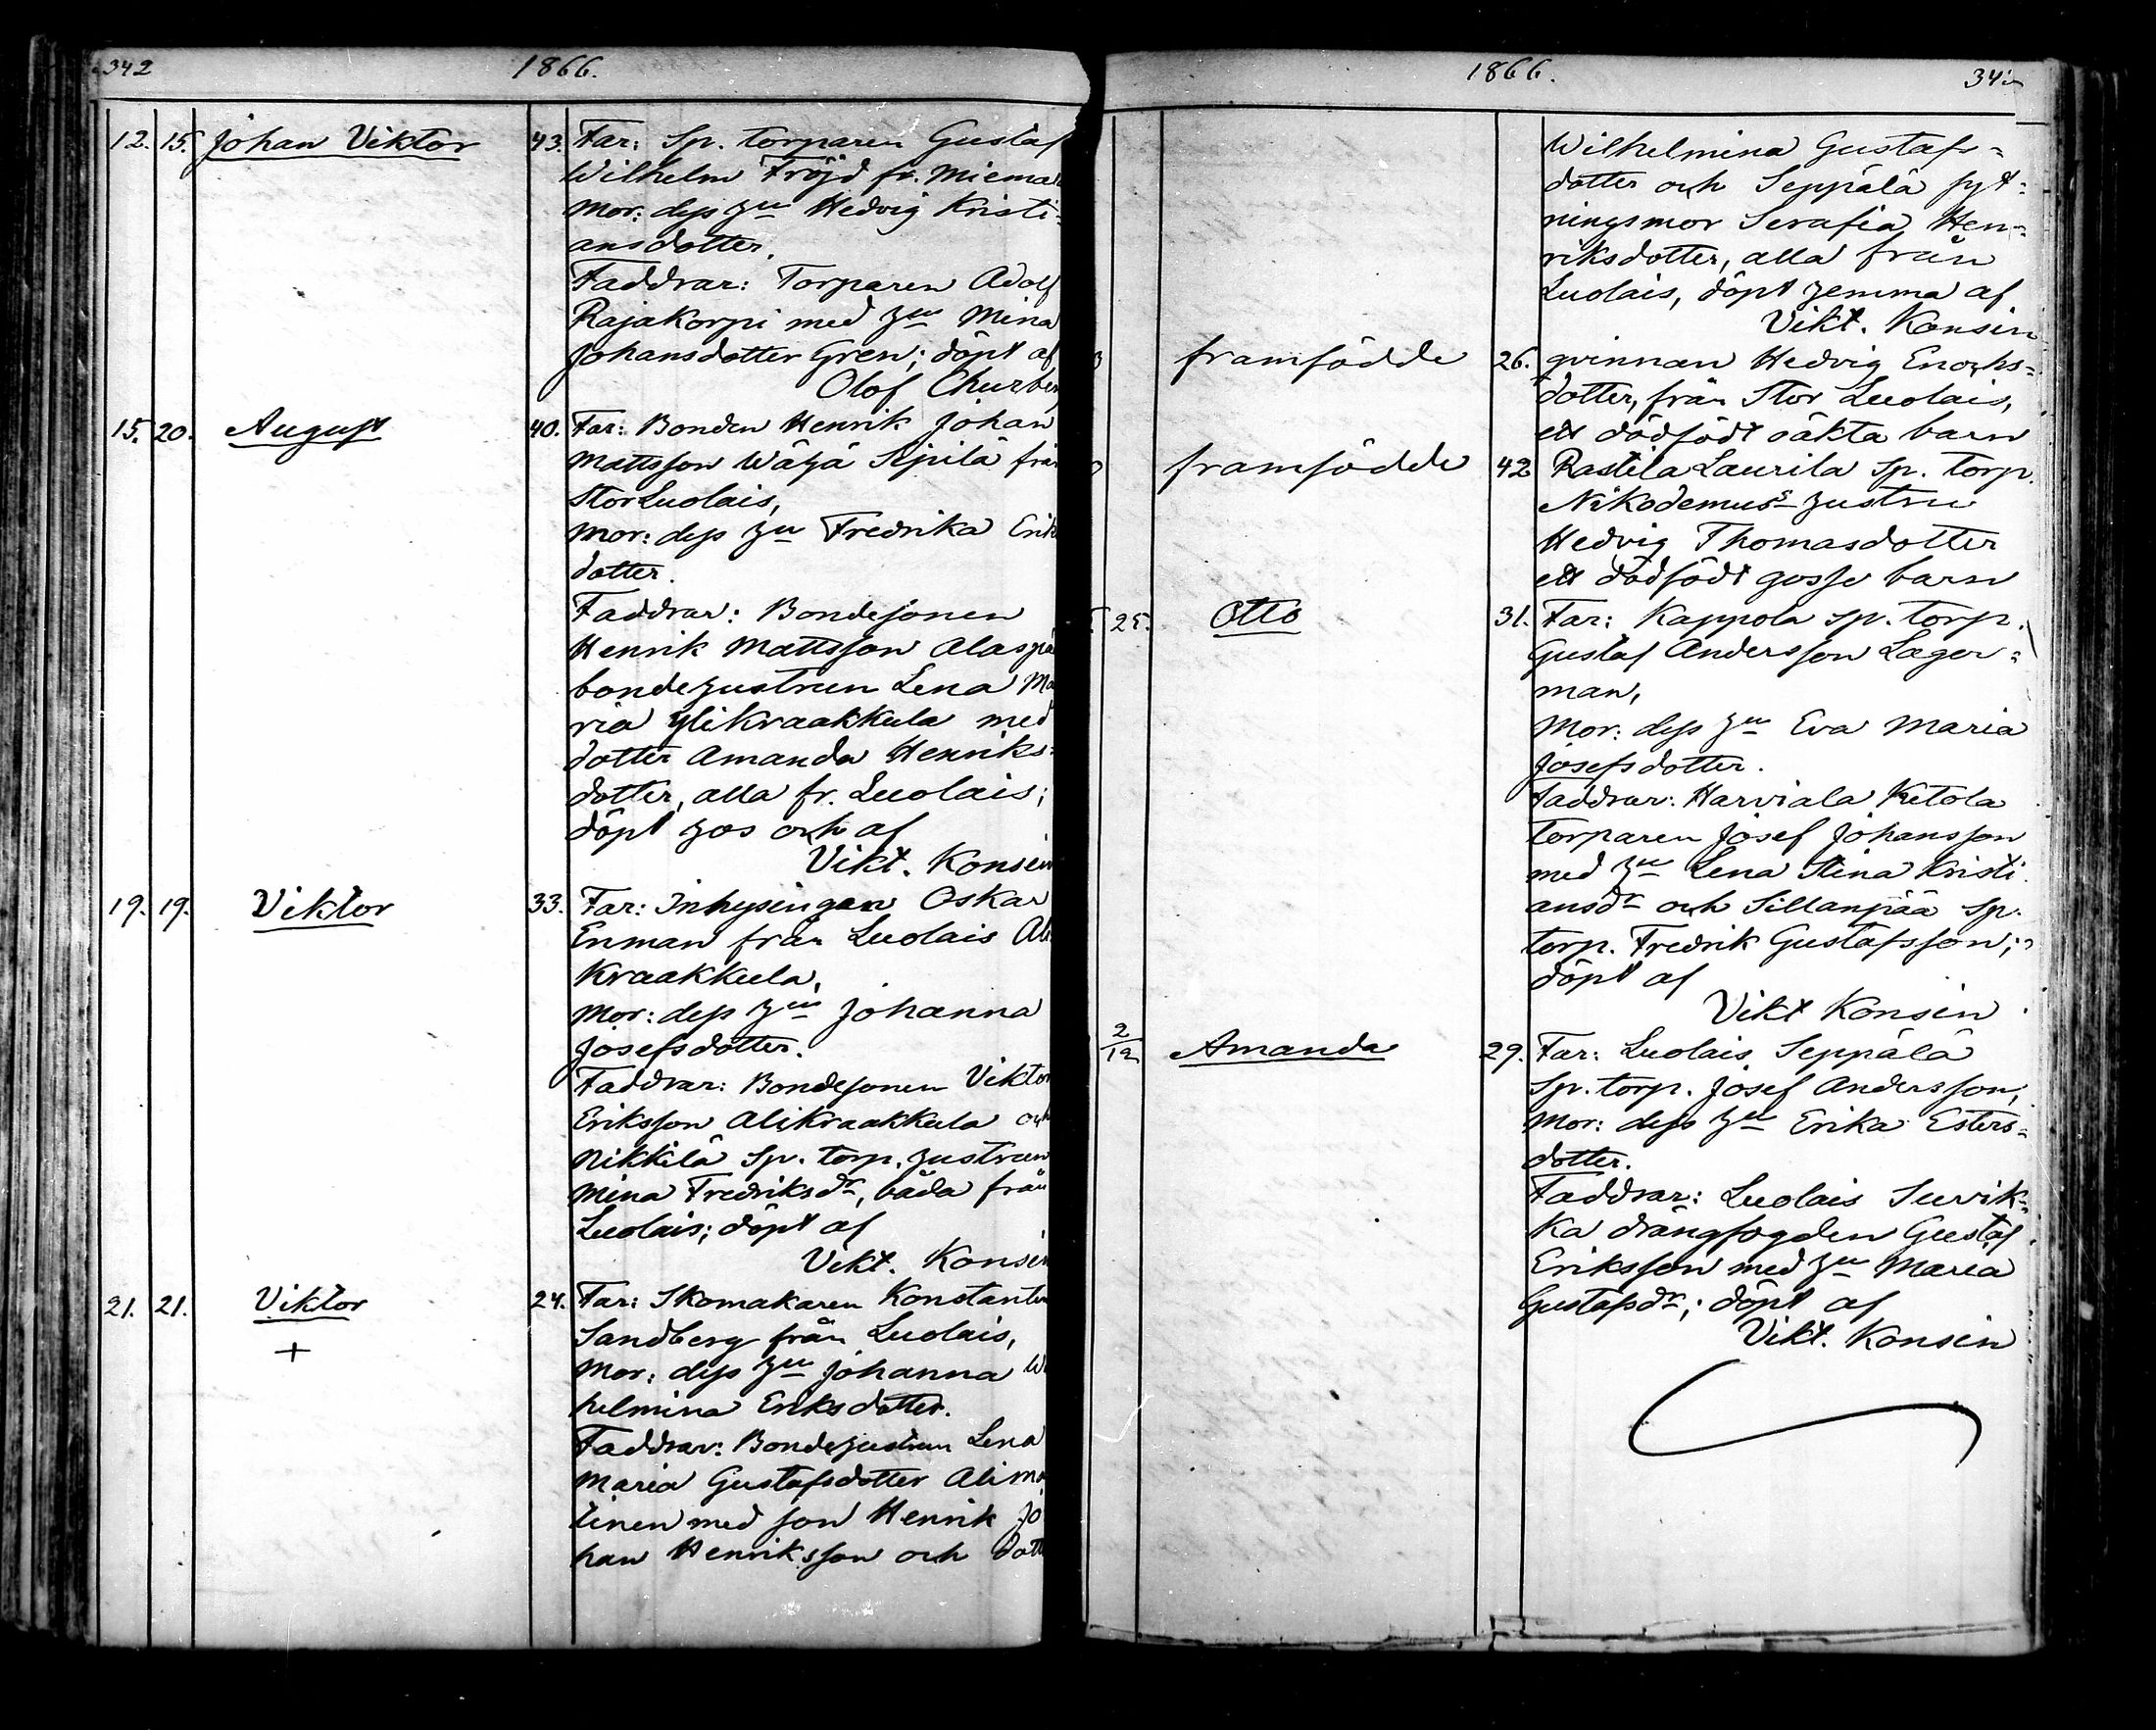 342 1866.
12. 15. Johan Viktor 43. Far: Sp. torparen Gustaf
Wilhelm Fröjd fr. Miema
Mor: dess hu Hedvig Kristi-
ansdotter.
Faddrar: Torparen Adolf
Rajakorpi med hu Mina
Johansdotter Gren; döpt af
Olof Churberg
15. 20. August 40. Far: Bonden Henrik Johan
Mattsson Wähä Sipilä från
Stor Luolais,
Mor: dess hu Fredrika Eriks
dotter.
Faddrar: Bondesonen
Henrik Mattsson Alaspä
bondehustrun Lena Ma
ria Ylikraakkula med
dotter Amanda Henriks-
dotter, alla fr. Luolais;
döpt hos och af
Vikt. Konsin
19. 19. Viktor 33. Far: Inhysingen Oskar
Enman från Luolais Ali
Kraakkula,
Mor: dess hu Johanna
Josefsdotter.
Faddrar: Bondesonen Viktor
Eriksson Alikraakkula och
Nikkilä Sp. torp. hustrun
Mina Fredriksdr, båda från
Luolais; döpt af
Vikt. Konsin
21. 21. Viktor 24. Far: Skomakaren Konstantin
+ Sandberg från Luolais,
Mor: dess hu Johanna Wi
helmina Eriksdotter.
Faddrar: Bondehustrun Lena
Maria Gustafsdotter Alimo
tinen med son Henrik Jo
han Henriksson och dott
1866. 34
Wilhelmina Gustafs-
dotter och Seppälä syt-
ningsmor Serafia Hen-
riksdotter, alla från
Luolais, döpt hemma af
Vikt. Konsin
framfödde 26. qvinnan Hedvig Enochs-
dotter, från Stor Luolais,
ett dödfödt oäkta barn
framfödde 42 Rastila Laurila Sp. torp.
Nikodemus's hustru
Hedvig Thomasdotter
ett dödfödt gosse barn
25. Otto 31. Far: Kappola Sp. torp.
Gustaf Andersson Lager-
man,
Mor: dess hu Eva Maria
Josefsdotter.
Faddrar: Harviala Ketola
torparen Josef Johansson
med hu Lena Stina Kristi
ansdr och Sillanpää Sp.
torp. Fredrik Gustafsson;
döpt af
Vikt Konsin
2/12 Amanda 29. Far: Luolais Seppälä
Sp. torp. Josef Andersson,
Mor: dess hu Erika Esters-
dotter.
Faddrar: Luolais Survik-
ka drängfogden Gustaf
Eriksson med hu Maria
Gustafsdr; döpt af
Vikt. Konsin